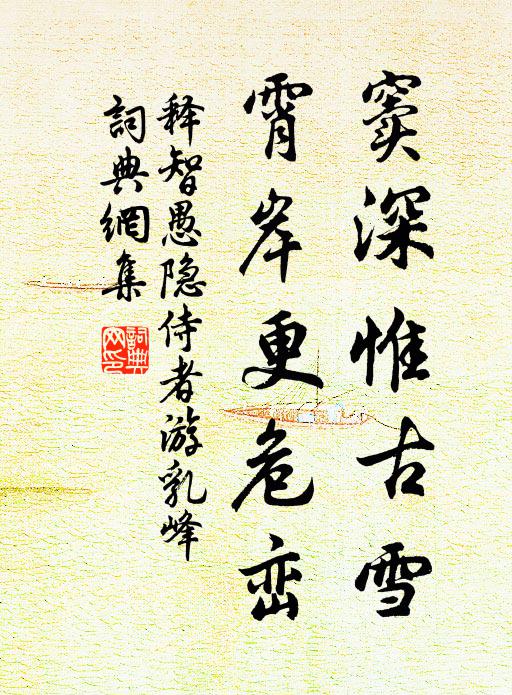 窦深惟古雪
霄岸更危峦
释智愚隐侍者游乳峰
詞典網集
詞典
网印